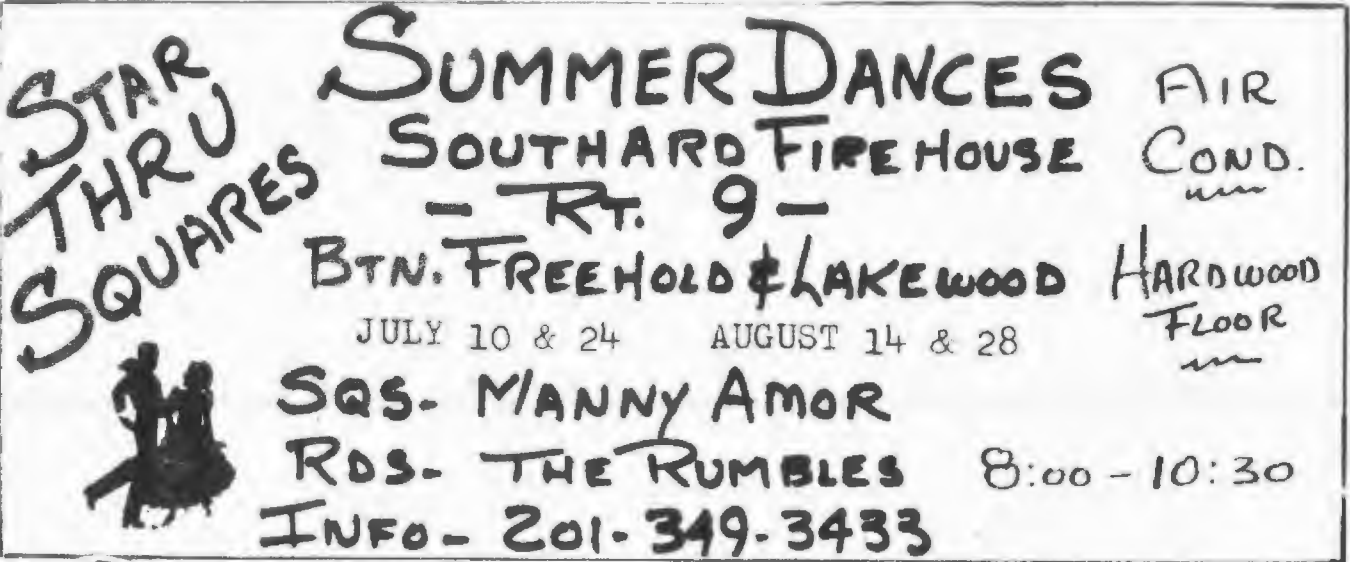 STAR
THRU
SQUARES
SUMMER DANCES
SOUTHARD FIREHOUSE
- RT. 9 -
BTN. FREEHOLD & LAKEWOOD
JULY 10 & 24 AUGUST 14 & 28
SQS- MANNY AMOR
RDS- THE RUMBLES 8:00 - 10:30
INFO- 201-349-3433
AIR
COND.
HARDWOOD
FLOOR